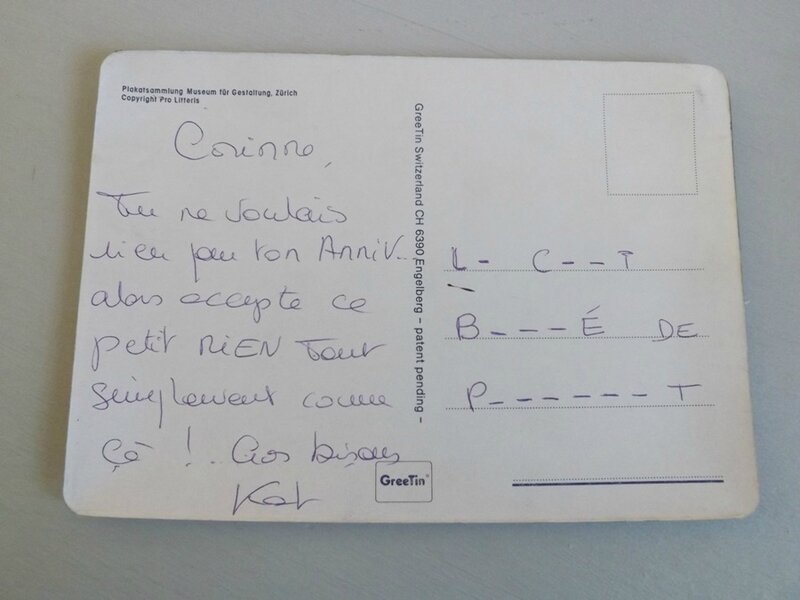 Plakatsammlung Museum für Gestaltung, Zürich
Copyright Pro Litteris
Corinne,
Tu ne voulais
rien pour ton ANNIV..
alors accepte ce
petit RIEN Tout
simplement comme
çà ! Gros bisous
Kat
GreeTin Switzerland CH 6390 Engelberg – patent pending –
GreeTin
L- C--T
B---É DE
P------T